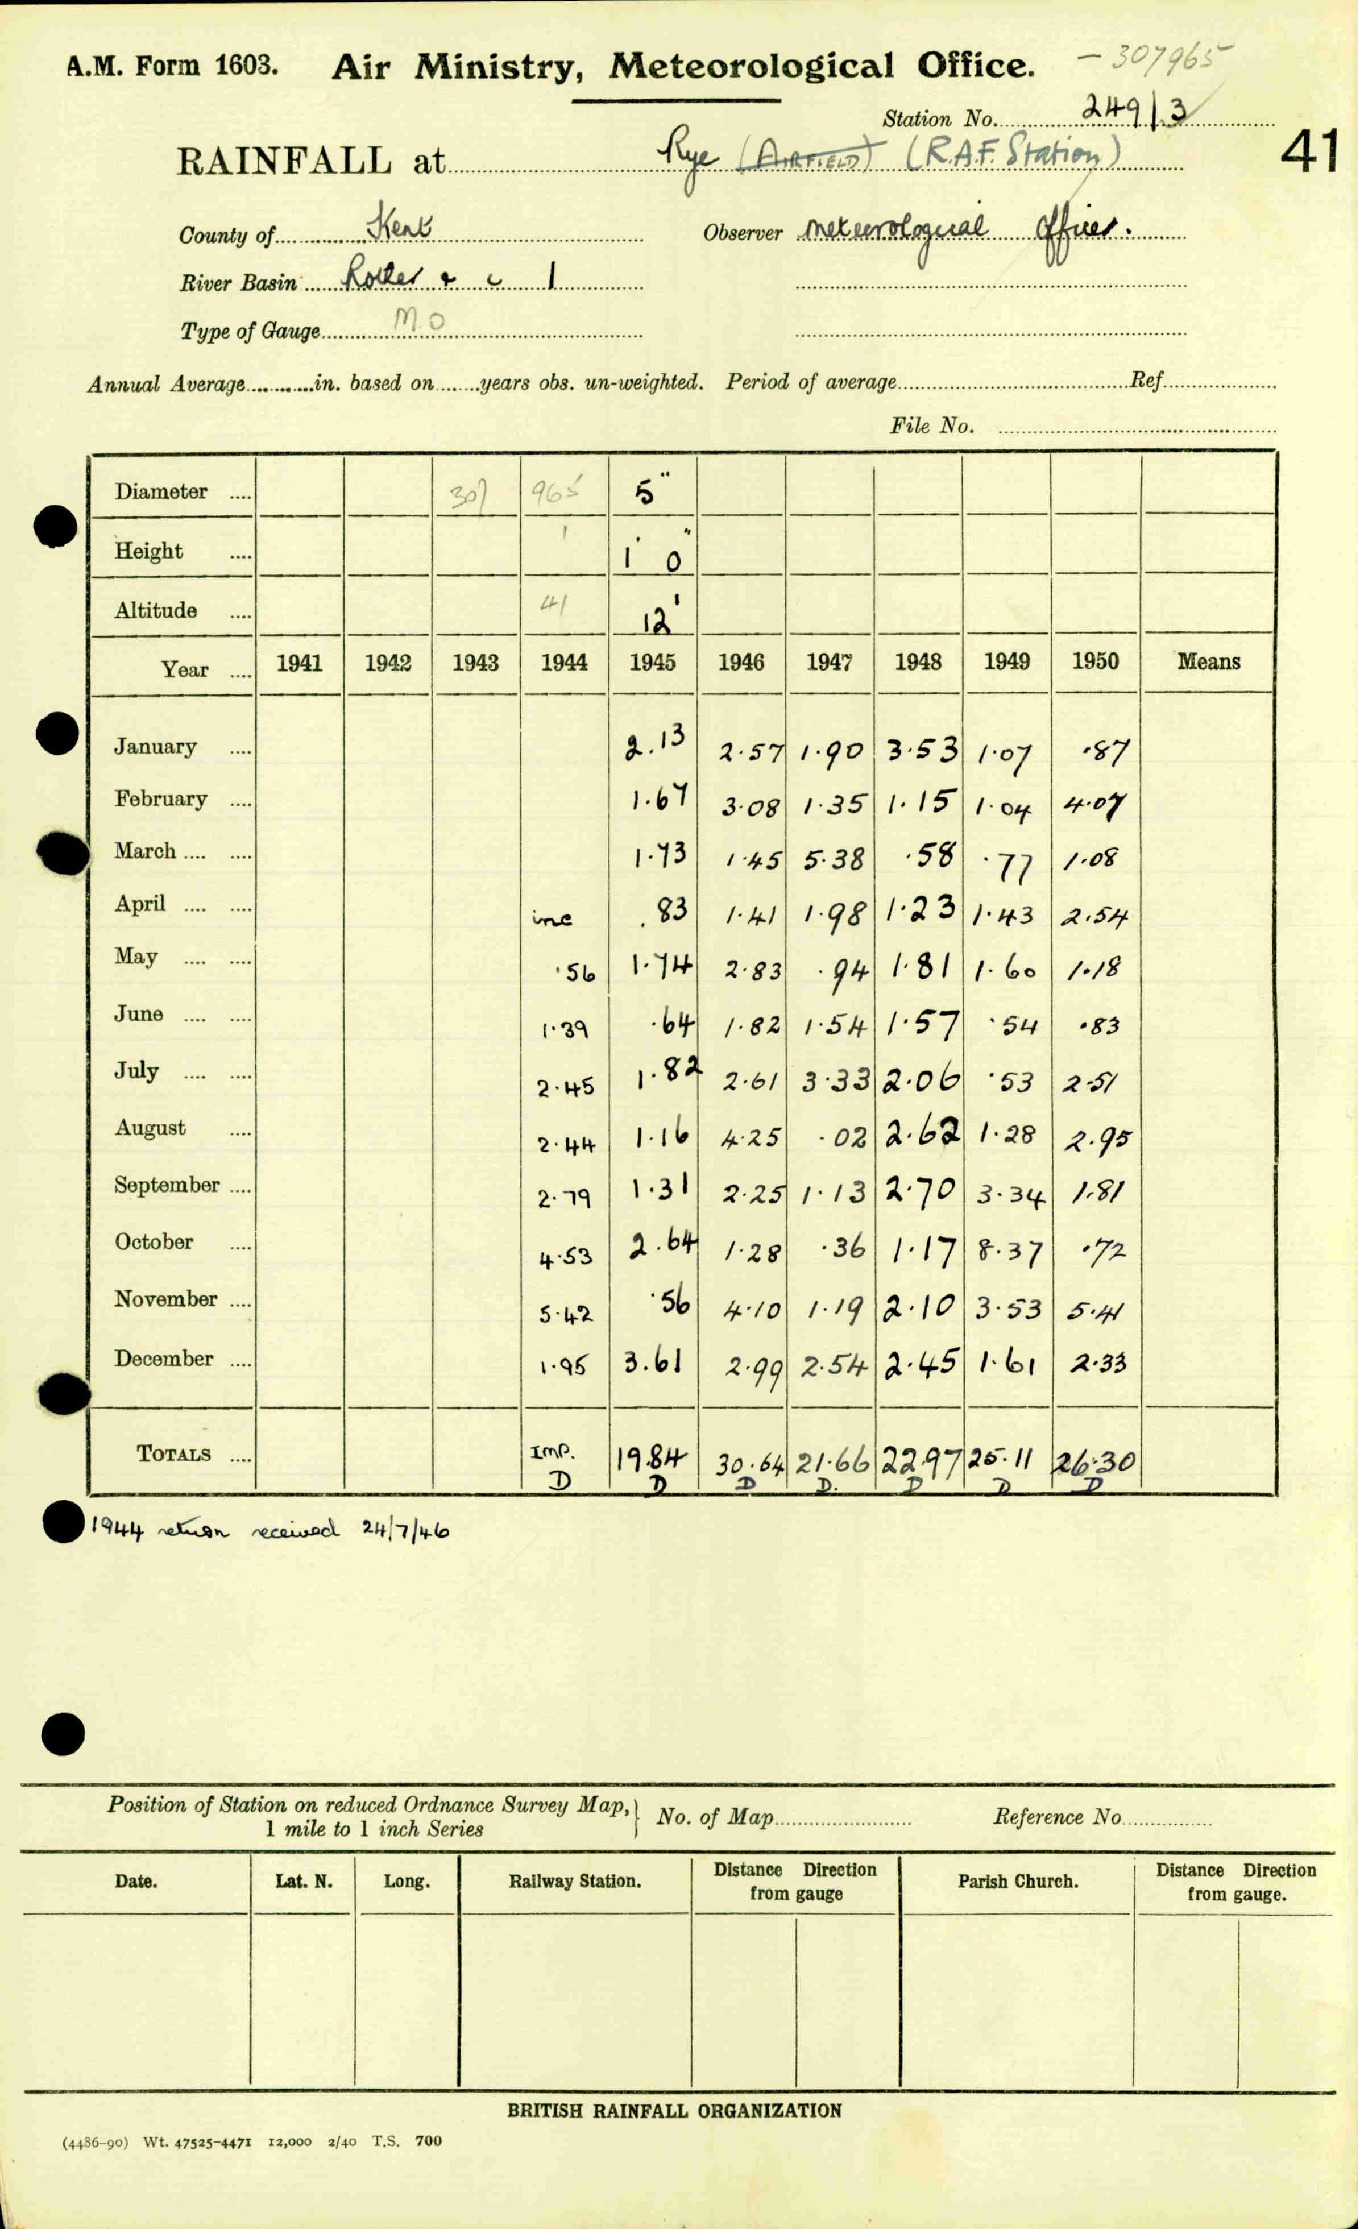 A.M. Form 1603. Air Ministry, Meteorological Office. - 307965
Station No. 249/3
41
RAINFALL at Rye (AIRFIELD) (R.A.F. Station)
County of Kent Observer Meteorological Officer.
River Basin Rother & c 1
Type of Gauge M.O
Annual Average in. based on years obs. un-weighted. Period of average Ref.
File No.
Diameter 307 965 5"
Height 1 1' 0"
Altitude 41 12'
Year 1941 1942 1943 1944 1945 1946 1947 1948 1949 1950 Means
January 2.13 2.57 1.90 3.53 1.07 .87
February 1.67 3.08 1.35 1.15 1.04 4.07
March 1.73 1.45 5.38 .58 .77 1.08
April inc .83 1.41 1.98 1.23 1.43 2.54
May .56 1.74 2.83 .94 1.81 1.60 1.18
June 1.39 .64 1.82 1.54 1.57 .54 .83
July 2.45 1.82 2.61 3.33 2.06 .53 2.51
August 2.44 1.16 4.25 .02 2.62 1.28 2.95
September 2.79 1.31 2.25 1.13 2.70 3.34 1.81
October 4.53 2.64 1.28 .36 1.17 8.37 .72
November 5.42 .56 4.10 1.19 2.10 3.53 5.41
December 1.95 3.61 2.99 2.54 2.45 1.61 2.33
TOTALS Imp. 19.84 30.64 21.66 22.97 25.11 26.30
D D D D. D D D
1944 return received 24/7/46
Position of Station on reduced Ordnance Survey Map, 1 mile to 1 inch Series } No. of Map Reference No.
Date. Lat. N. Long. Railway Station. Distance Direction from gauge Parish Church. Distance Direction from gauge.
BRITISH RAINFALL ORGANIZATION
(4486-90) Wt. 47525-4471 12,000 2/40 T.S. 700